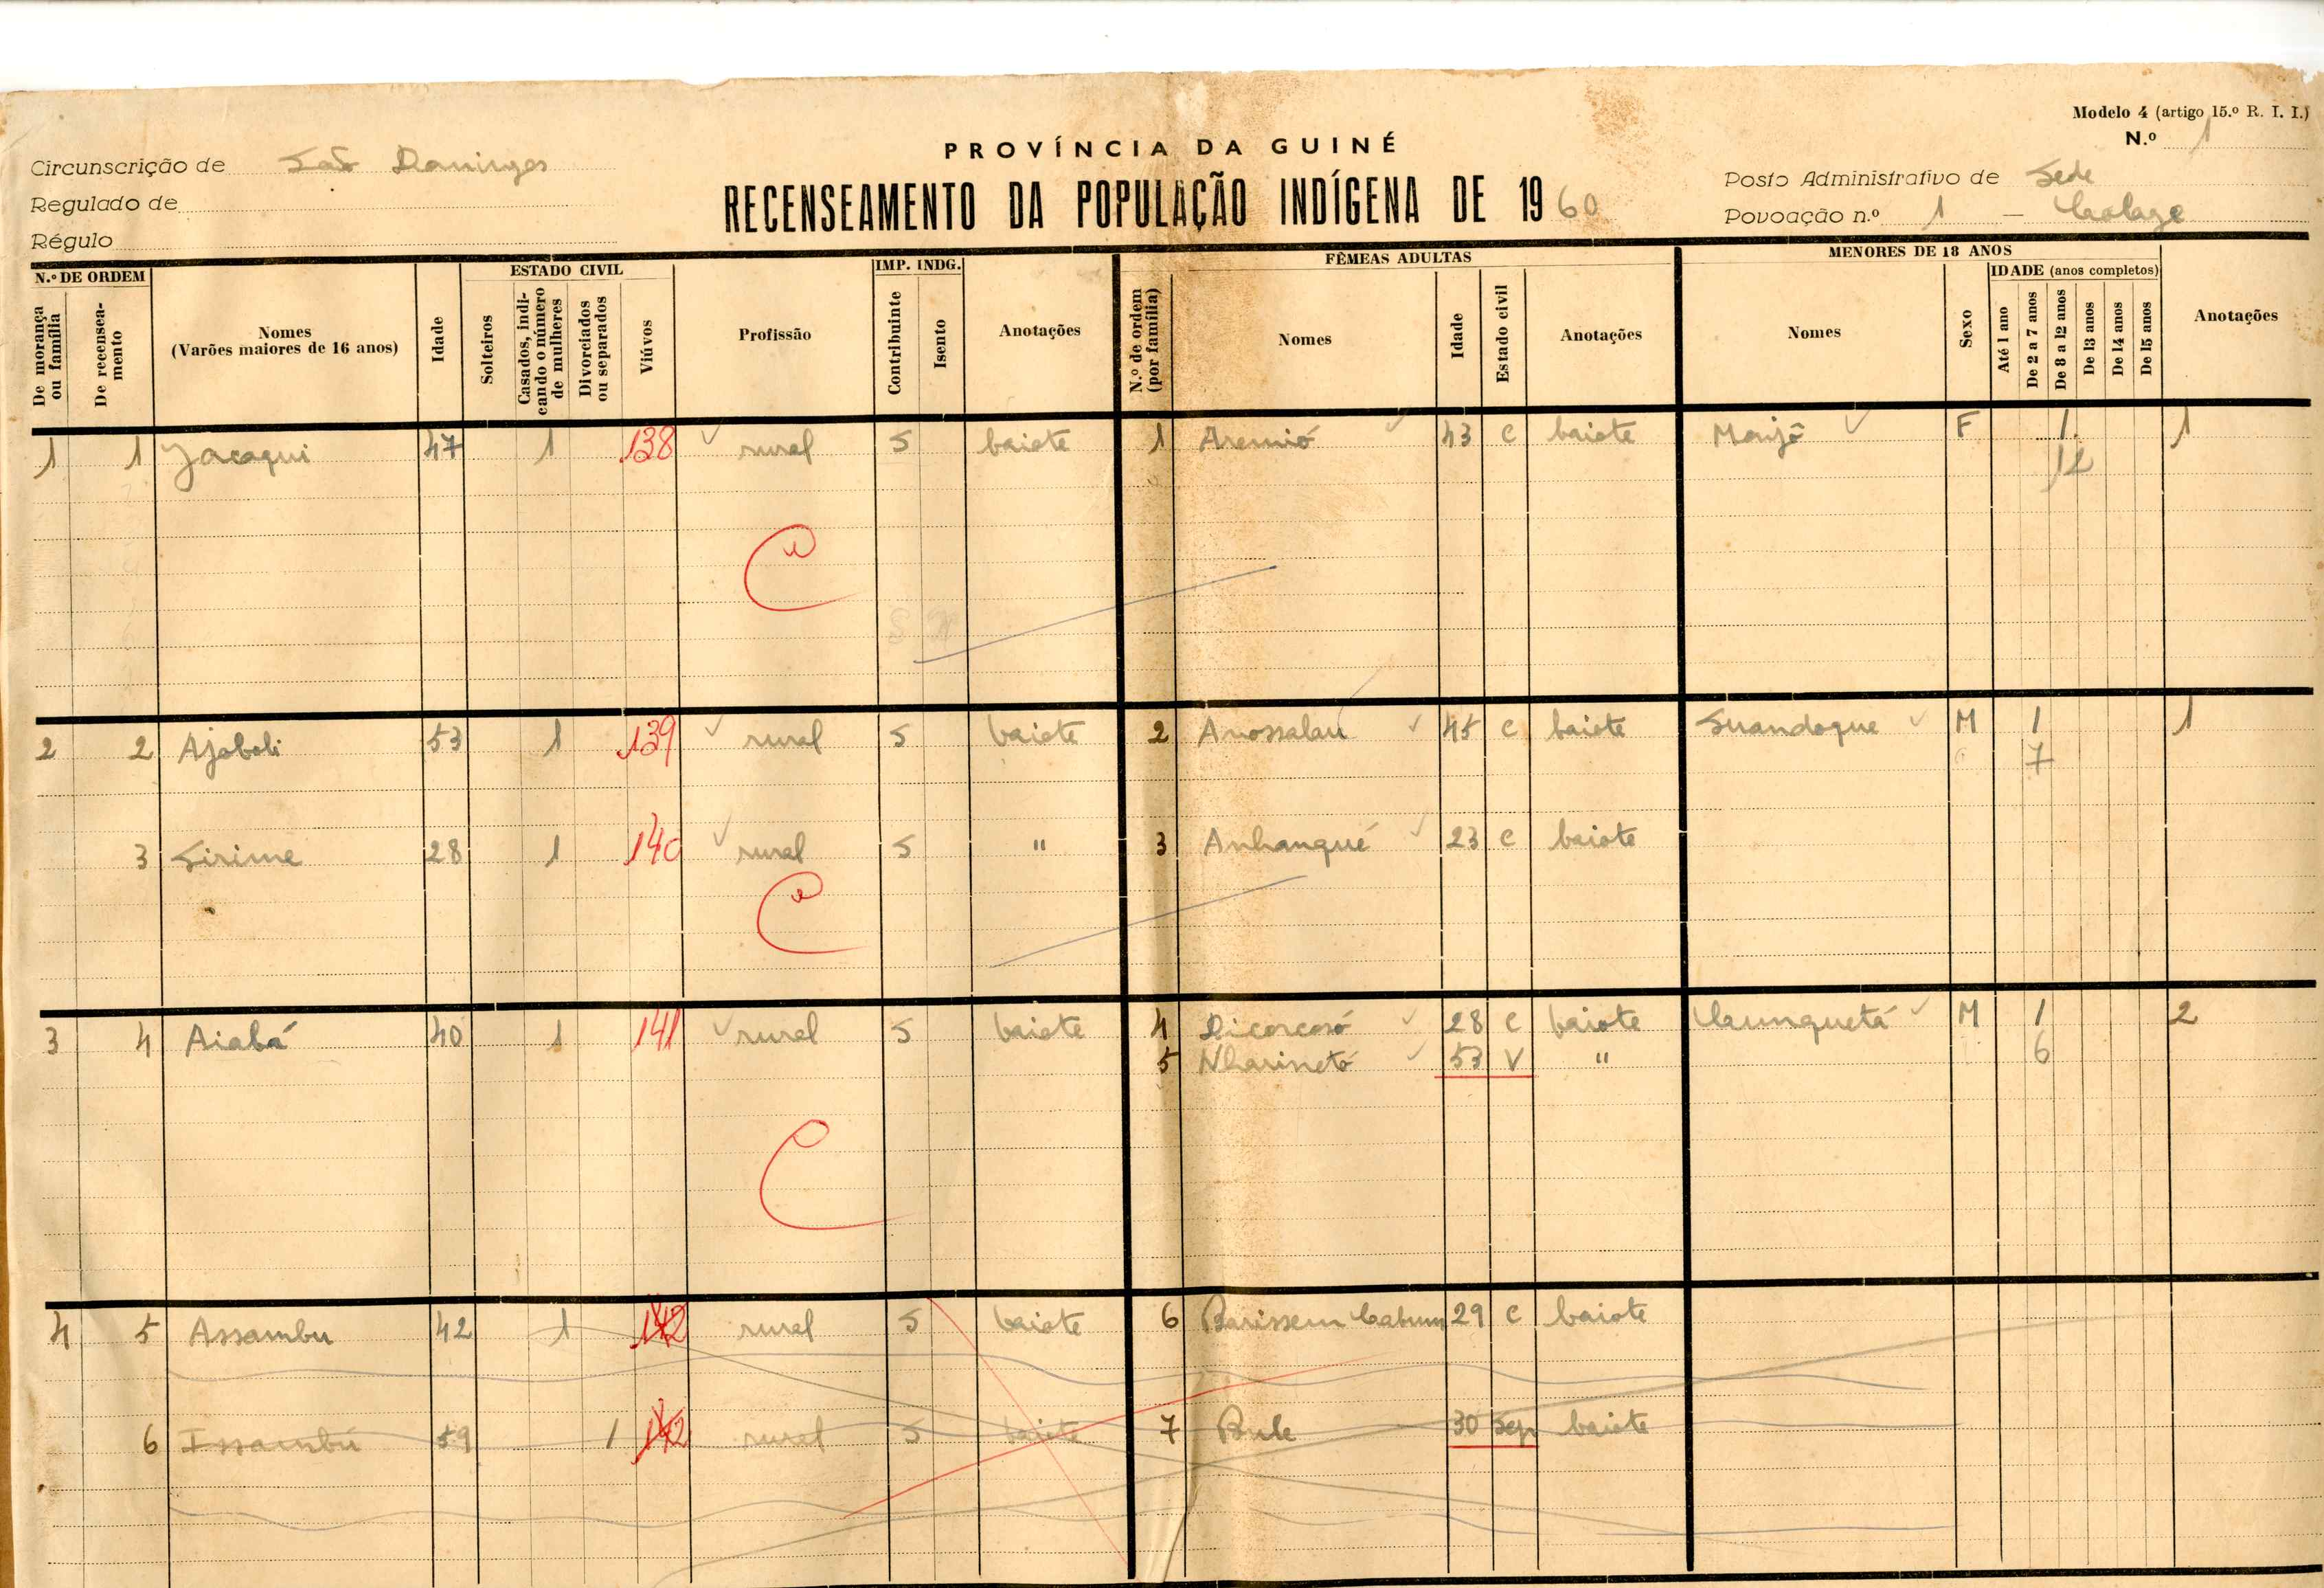 Modelo 4 (artigo 15.º R. I. I.)
N.º 1
PROVÍNCIA DA GUINÉ
RECENSEAMENTO DA POPULAÇÃO INDÍGENA DE 1960
Circunscrição de São Domingos
Regulado de
Régulo
Posto Administrativo de Sede
Povoação n.º 1 —
N.º DE ORDEM
De morança ou família
De recenseamento
Nomes
(Varões maiores de 16 anos)
Idade
ESTADO CIVIL
Solteiros
Casados, indicando o número de mulheres
Divorciados ou separados
Viúvos
Profissão
IMP. INDG.
Contribuinte
Isento
Anotações
FÊMEAS ADULTAS
N.º de ordem (por família)
Nomes
Idade
Estado civil
Anotações
MENORES DE 18 ANOS
Nomes
Sexo
IDADE (anos completos)
Até 1 ano
De 2 a 7 anos
De 8 a 12 anos
De 13 anos
De 14 anos
De 15 anos
Anotações
1 1 Jacaqui 47 1 138 rural S baiote 1 Aremió 43 C baiote Manjõ F 1 1
12
2 2 Ajaboli 53 1 139 rural S baiote 2 Anossalau 45 C baiote Suandoque M 1 1
7
3 Sirime 28 1 140 rural S " 3 Anhanqué 23 C baiote
3 4 Aiabá 40 1 141 rural S baiote 4 Dicorcosó 28 C baiote M 1 2
5 Nharinetó 53 V " 6
4 5 Assambu 42 1 142 rural S baiote 6 Barissem 29 C baiote
6 Issambú 59 1 142 rural S baiote 7 Bule 30 Sep baiote